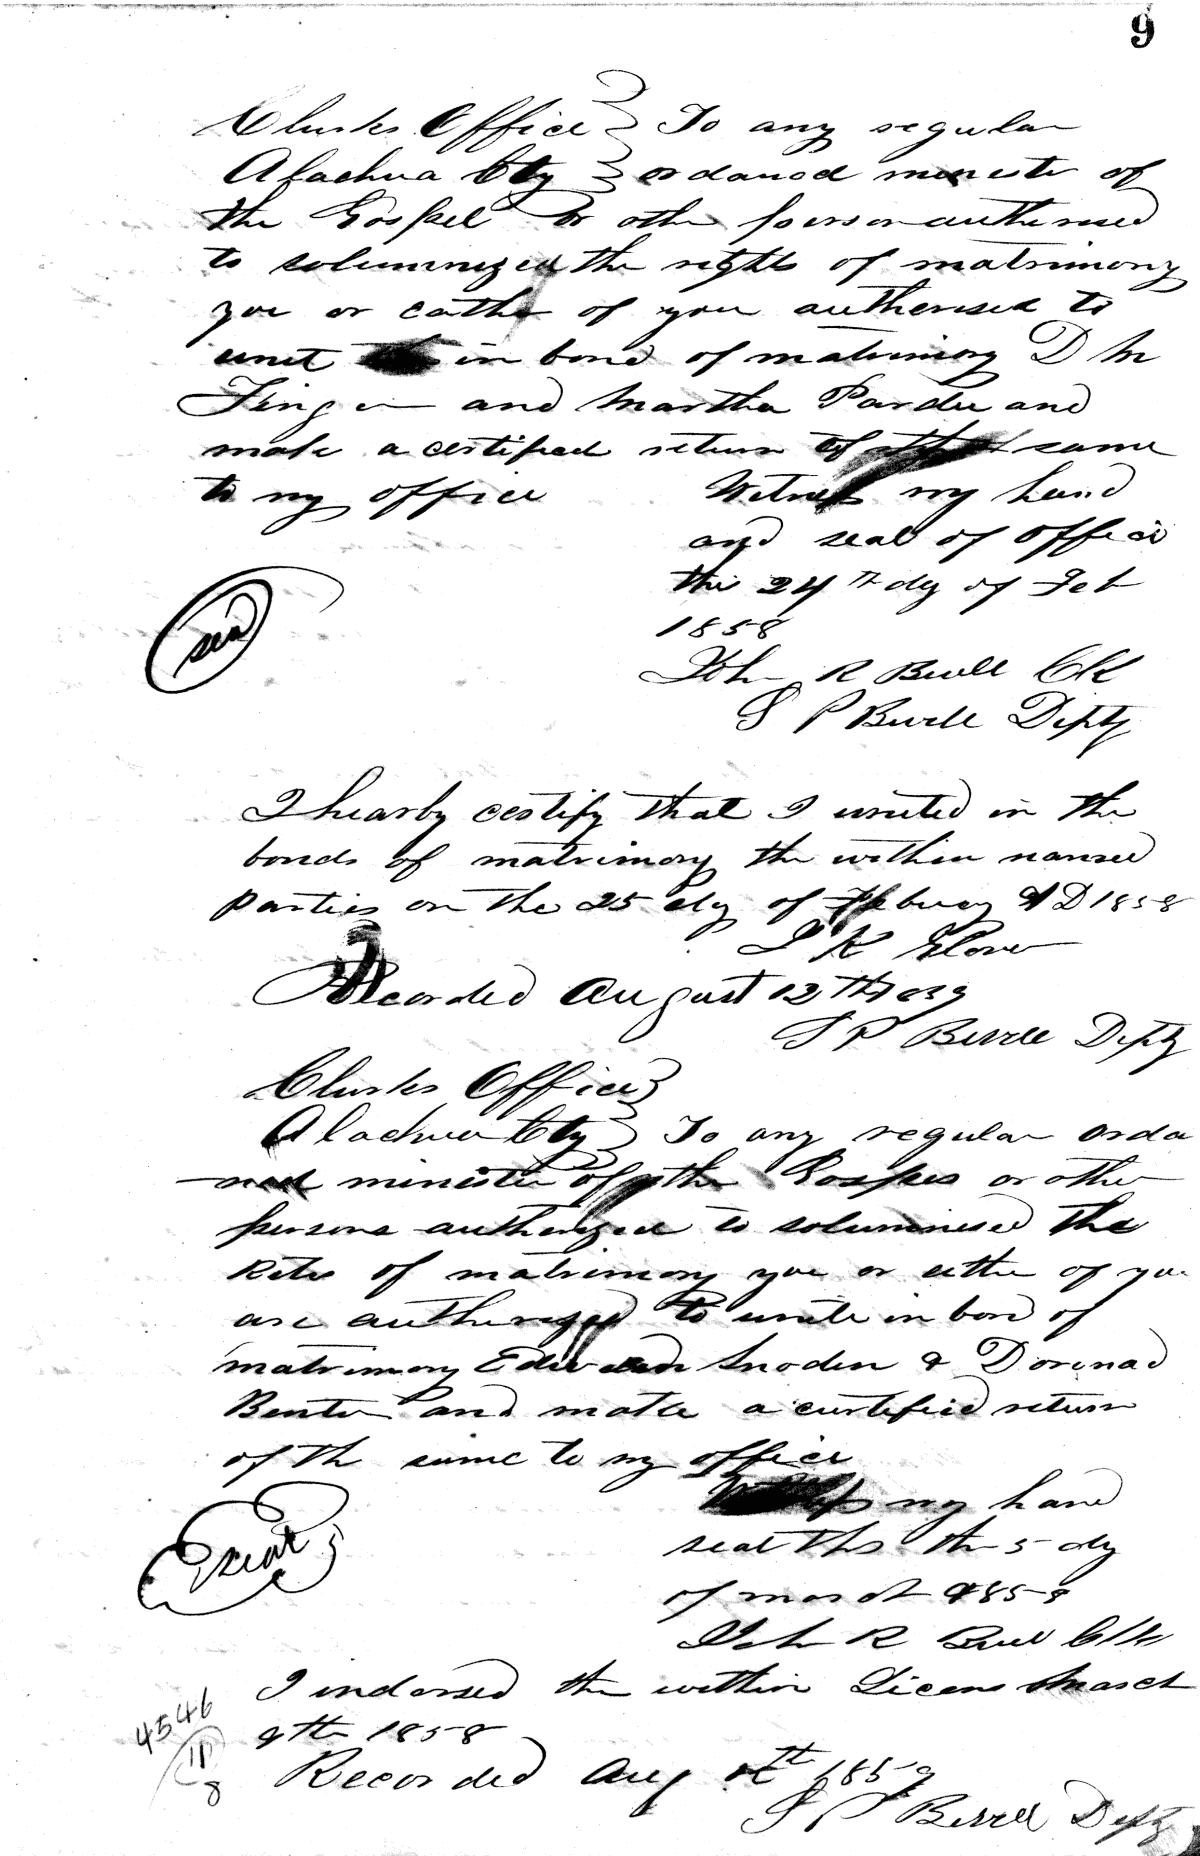 9
Clurks Office } To any regular
Alachua Cty } ordaned minester of
the Gospel or other person autherised
to solumnized the rights of matrimony
you or eathe of you autherised to
unet in bond of matrimony D M
Finger and Martha Pardee and
make a certified return of the same
to my office Witness my hand
and seal of office
this 24th dy of Feb
1858
seal
John R Bevill Clk
S P Burll Depty
I hearby certify that I united in the
bonds of matrimony the within named
parties on the 25 dy of Febuary AD 1858
K Glover
Recorded August 12th 1859
S P Bevill Depty
Clurks Office }
Alachua Cty } To any regular orda
-ned minister of the Gospel or other
persons autherized to solumnised the
Rites of matrimony you or eithe of you
are autherized to unite in bond of
matrimony Edward Snoden &
and make a curtified return
of th same to my office
Witness my hand
seal this th 5 dy
of march 1858
seal
John R Bevill Clk
I indorsed the within Licens March
8th 1858
4546
8
Recorded Aug 12th 1859
S P Bevill Depty